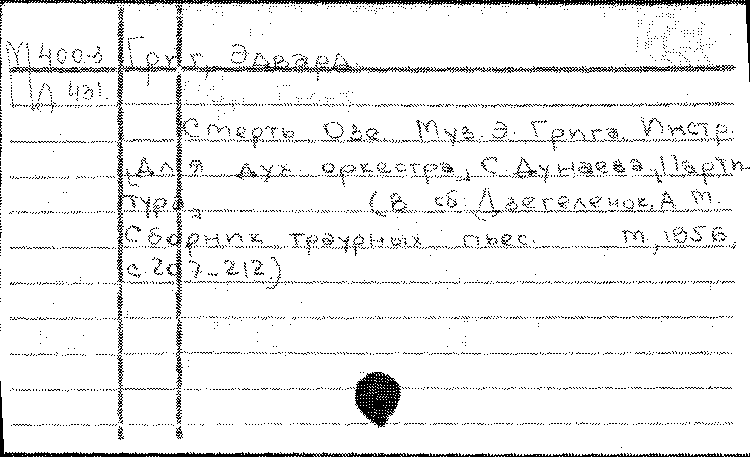 М 400-3 Григ, Эдвард.
Д 431 Пер Гюнт
Смерть Озе Муз. Э. Грига. Инстр.
для дух оркестра, С Дунаева, Парти
тура, (В сб: Дзегеленок, А М.
Сборник траурных пьес. М, 1956,
с 207-212)